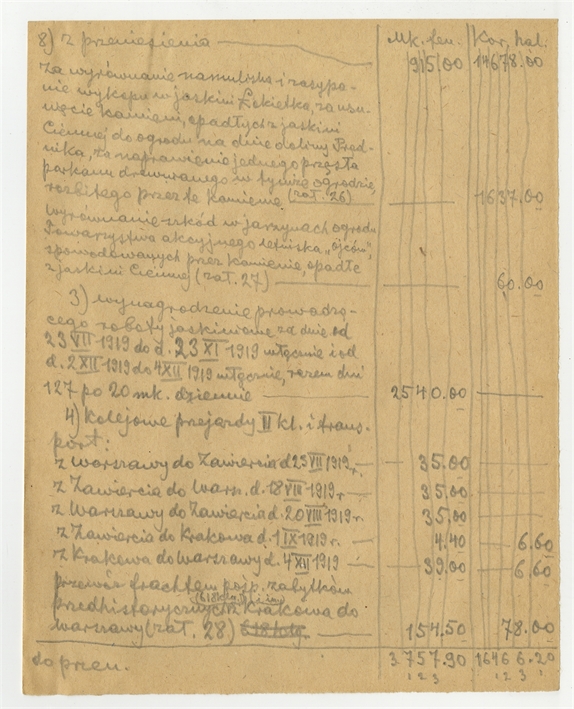 8) z przeniesienia Mk. fen. Kor. hal.
915.00 14678.00
Za wyrównanie namuliska i zasypa-
nie wykopu w jaskini Łokietka, za usu-
nięcie kamieni, opadłych z jaskini
Ciemnej do ogrodu na dnie doliny Prąd-
nika, za naprawienie jednego przęsła
parkanu drewnianego w tymże ogrodzie,
rozbitego przez te kamienie (zał. 26) — 1637.00
Wyrównanie szkód w jarzynach ogrodu
Towarzystwa akcyjnego letniska „Ojców",
spowodowanych przez kamienie, opadłe
z jaskini Ciemnej (zał. 27) — 60.00
3) wynagrodzenie prowadzą-
cego roboty jaskiniowe za dnie od
23 VII 1919 do d. 23 XI 1919 włącznie i od
d. 2 XII 1919 do 4 XII 1919 włącznie, razem dni
127 po 20 mk. dziennie — 2540.00 —
4) kolejowe przejazdy II kl. i trans-
port:
z Warszawy do Zawiercia d. 23 VII 1919 r. — 35.00 —
z Zawiercia do Warsz. d. 18 VIII 1919 r. — 35.00 —
z Warszawy do Zawiercia d. 20 VIII 1919 r. 35.00
z Zawiercia do Krakowa d. 1 IX 1919 r. — 4.40 6.60
z Krakowa do Warszawy d. 4 XII 1919 — 39.00 6.60
przewóz frachtem pośp. zabytków
przedhistorycznych z Krakowa do
Warszawy (zał. 28) 618 klg. — 154.50 78.00
do przen. 3757.90 16466.20
1 2 3 1 2 3